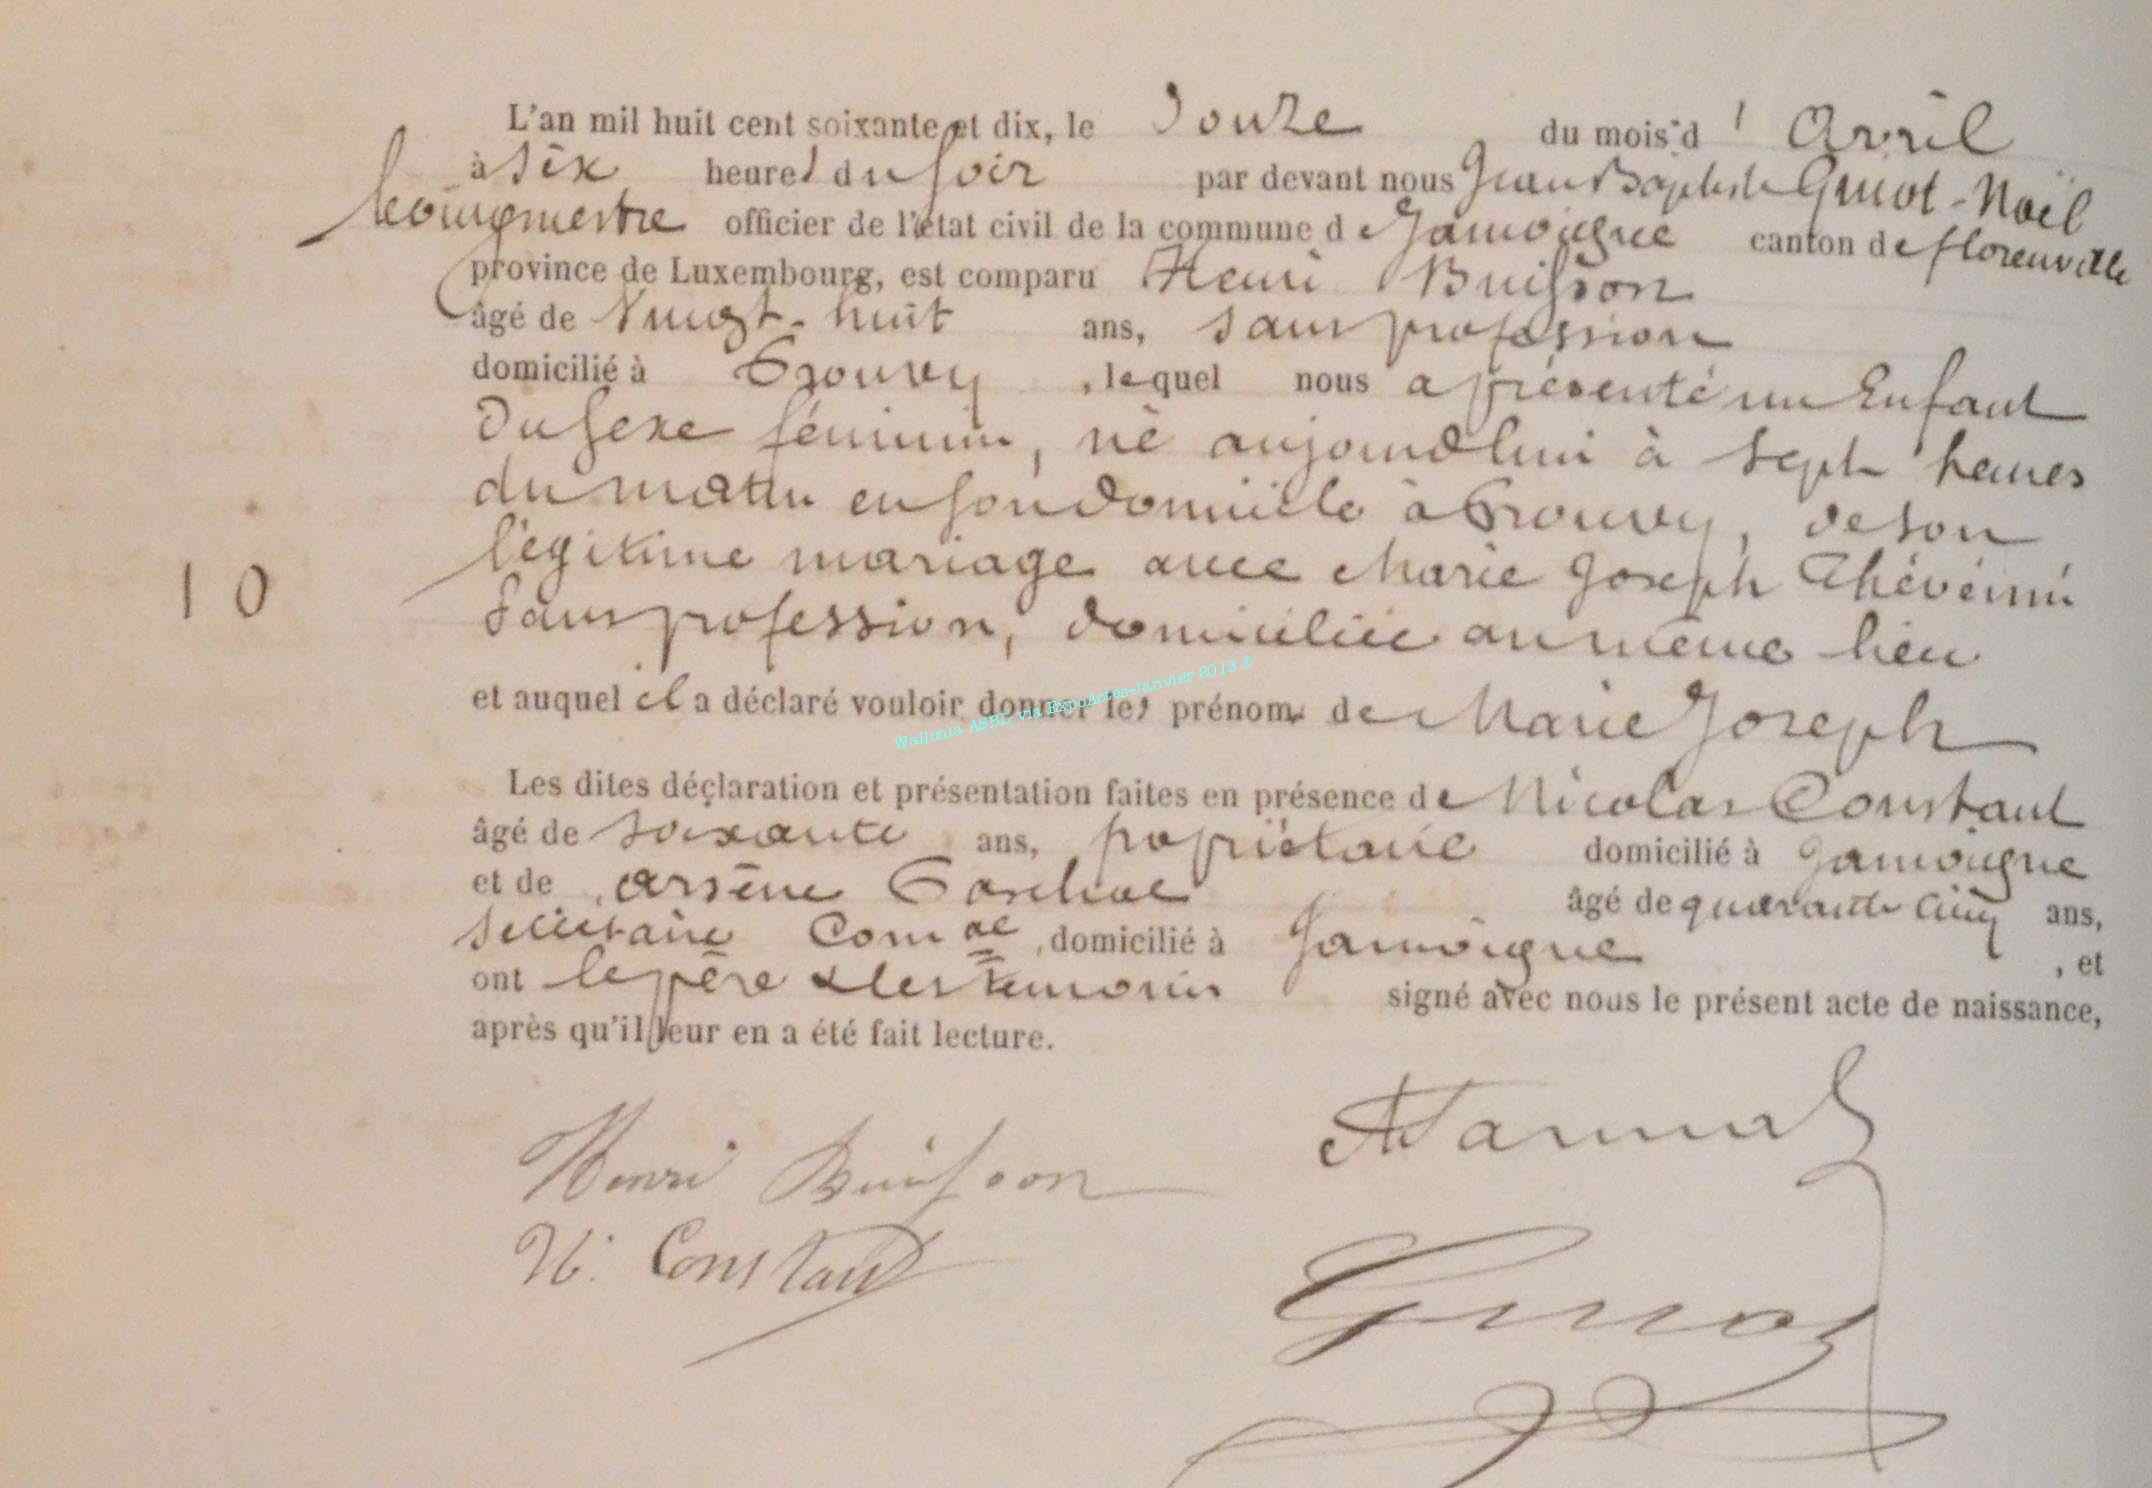 L'an mil huit cent soixante et dix, le douze du mois d' avril
à six heures du soir par devant nous Jean Baptiste Guiot-Noël
bourgmestre officier de l'état civil de la commune de Jamoigne canton de florenville
province de Luxembourg, est comparu Henri Buisson
âgé de vingt-huit ans, sans profession
domicilié à Prouvy, lequel nous a présenté un Enfant
du sexe féminin, né aujourd'hui à sept heures
du matin en son domicile à Prouvy, de son
légitime mariage avec Marie Joseph Thévenin
sans profession, domiciliée au même lieu
et auquel il a déclaré vouloir donner les prénoms de Marie Joseph
Wallonia ASBL via ExpoActes-Janvier 2013 ©
10
Les dites déclaration et présentation faites en présence de Nicolas Constant
âgé de soixante ans, propriétaire domicilié à Jamoigne
et de arsène âgé de quarante cinq ans,
secrétaire Comal, domicilié à Jamoigne, et
ont le père & les témoins signé avec nous le présent acte de naissance,
après qu'il leur en a été fait lecture.
Henri Buisson
N. Constant
Guiot